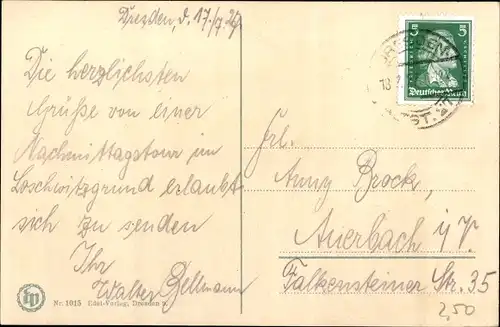 Dresden, d. 17./7. 29.
Die herzlichsten
Grüße von einer
Nachmittagstour im
Loschwitzgrund erlaubt
sich zu senden
Ihr
Walter Bellmann
Nr. 1015 Edel-Verlag, Dresden
5 5
Deutsches Reich
DRESDEN
18
Frl.
Anny Brock,
Auerbach i/V.
Falkensteiner Str. 35
2,50